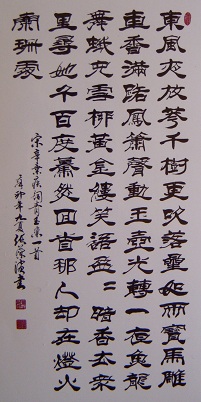 東風夜放華千樹更吹落星如雨寶馬雕
車香滿路鳳簫聲動玉壺光轉一夜魚龍
舞蛾兒雪柳黃金縷笑語盈〻暗香去衆
里尋她千百度驀然回首那人却在燈火
闌珊處
宋辛棄疾詞青玉案一首
辛卯年九夏張書